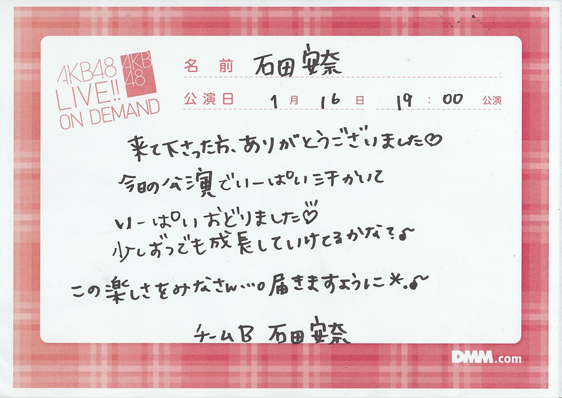 AKB48
LIVE!!
ON DEMAND
AKB
48
名前 石田安奈
公演日 1月16日 19:00 公演
来て下さった方、ありがとうございました♡
今日の公演でいーぱい汗かいて
いーぱいおどりました♡
少しずつでも成長していけてるかな?♪
この楽しさをみなさん…。届きますように*.♪
チームB 石田安奈
DMM.com